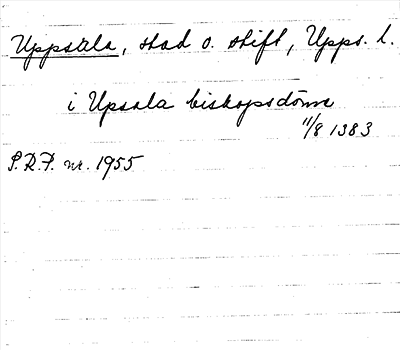 Uppsala, stad o. stift, Upps. l.
i Upsala biskopsdöme
11/8 1383
S.R.F. nr. 1955